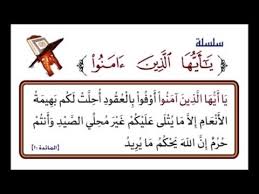 سلسلة
يَـٰٓأَيُّهَا ٱلَّذِينَ ءَامَنُوا۟
يَا أَيُّهَا الَّذِينَ آمَنُوا أَوْفُوا بِالْعُقُودِ أُحِلَّتْ لَكُم بَهِيمَةُ
الْأَنْعَامِ إِلَّا مَا يُتْلَى عَلَيْكُمْ غَيْرَ مُحِلِّي الصَّيْدِ وَأَنتُمْ
حُرُمٌ إِنَّ اللَّهَ يَحْكُمُ مَا يُرِيدُ
المائدة